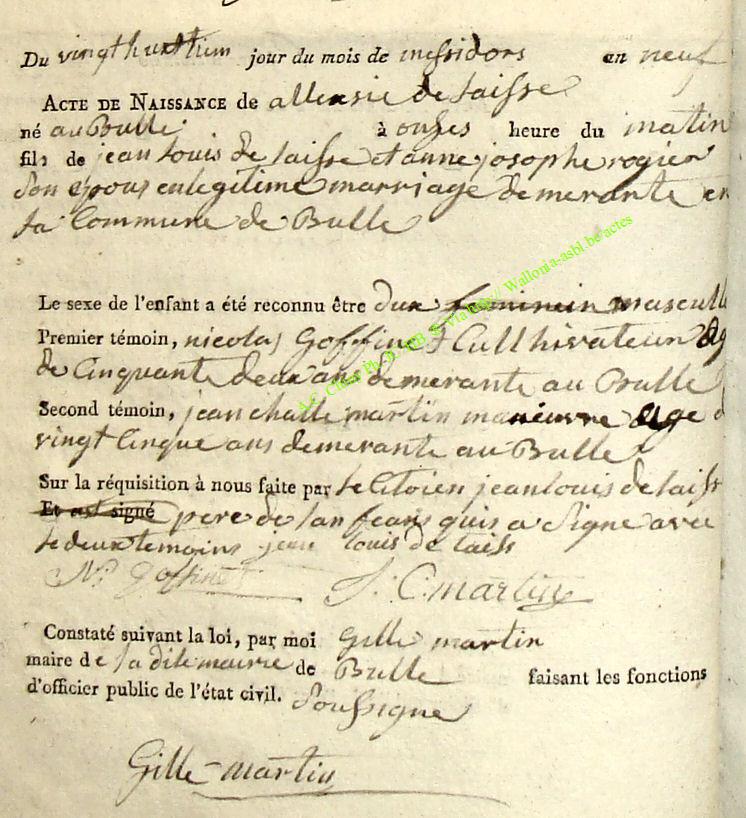 Du vingthuittiem jour du mois de messidors an neuf
ACTE DE NAISSANCE de allexsie de taisse
né au Bulle à onzes heure du matin
fils de jean louis de taisse et anne josophe rogier
son épous en legitime marriage demerante en
la Commune de Bulle
Le sexe de l'enfant a été reconnu être dux feminein masculle
Premier témoin, nicolas Goffinet Cullhivateur ag
de Cinquante deux ans demerante au Bulle
Second témoin, jean challe martin maneuvre age d
vingt Cinque ans demerante au Bulle
Sur la réquisition à nous faite par le Citoien jean louis de taiss
Et ont signé pere de lan feans quis a Signe avec
le deux temoins jean louis de taiss
N: Goffinet J: C: martin
Constaté suivant la loi, par moi Gille martin
maire de la dite mairie de Bulle faisant les fonctions
d'officier public de l'état civil. Soussigne
Gille martin
Wallonia-asbl.be/actes